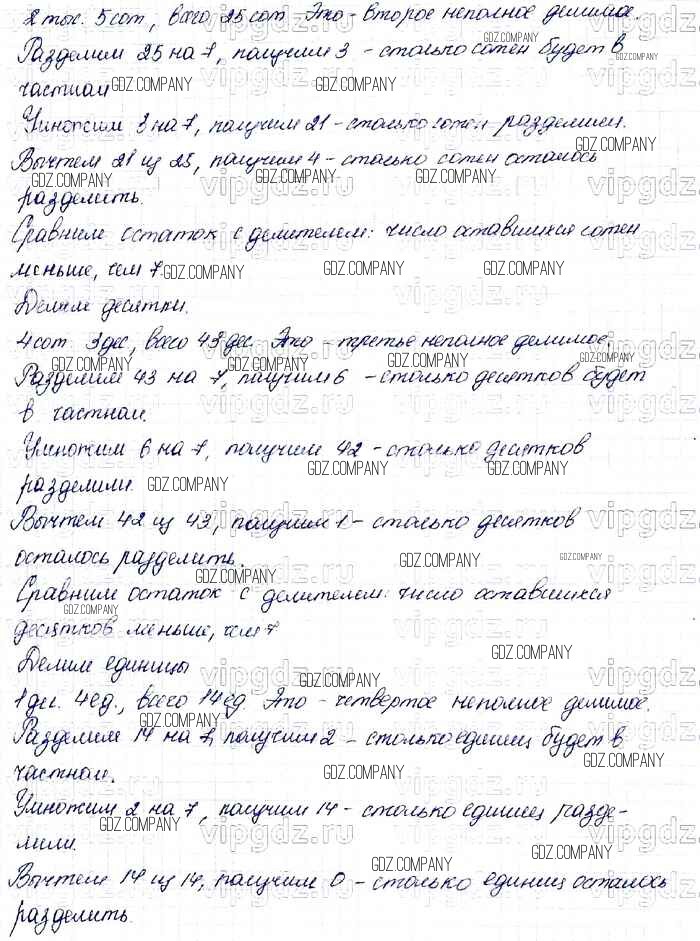 2 тыс. 5 сот, всего 25 сот Это - второе неполное делимое.
Разделим 25 на 7, получим 3 - столько сотен будет в
частном
Умножим 3 на 7, получим 21 - столько сотен разделили.
Вычтем 21 из 25, получим 4 - столько сотен осталось
разделить.
Сравним остаток с делителем: число оставшихся сотен
меньше, чем 7.
Делим десятки.
4 сот. 3 дес, всего 43 дес. Это - третье неполное делимое.
Разделим 43 на 7, получим 6 - столько десятков будет
в частном.
Умножим 6 на 7, получим 42 - столько десятков
разделили.
Вычтем 42 из 43, получим 1 - столько десятков
осталось разделить.
Сравним остаток с делителем: число оставшихся
десятков меньше, чем 7
Делим единицы
1 дес. 4 ед., всего 14 ед Это - четвертое неполное делимое.
Разделим 14 на 7, получим 2 - столько единиц будет в
частном.
Умножим 2 на 7, получим 14 - столько единиц разде-
лили.
Вычтем 14 из 14, получим 0 - столько единиц осталось
разделить.